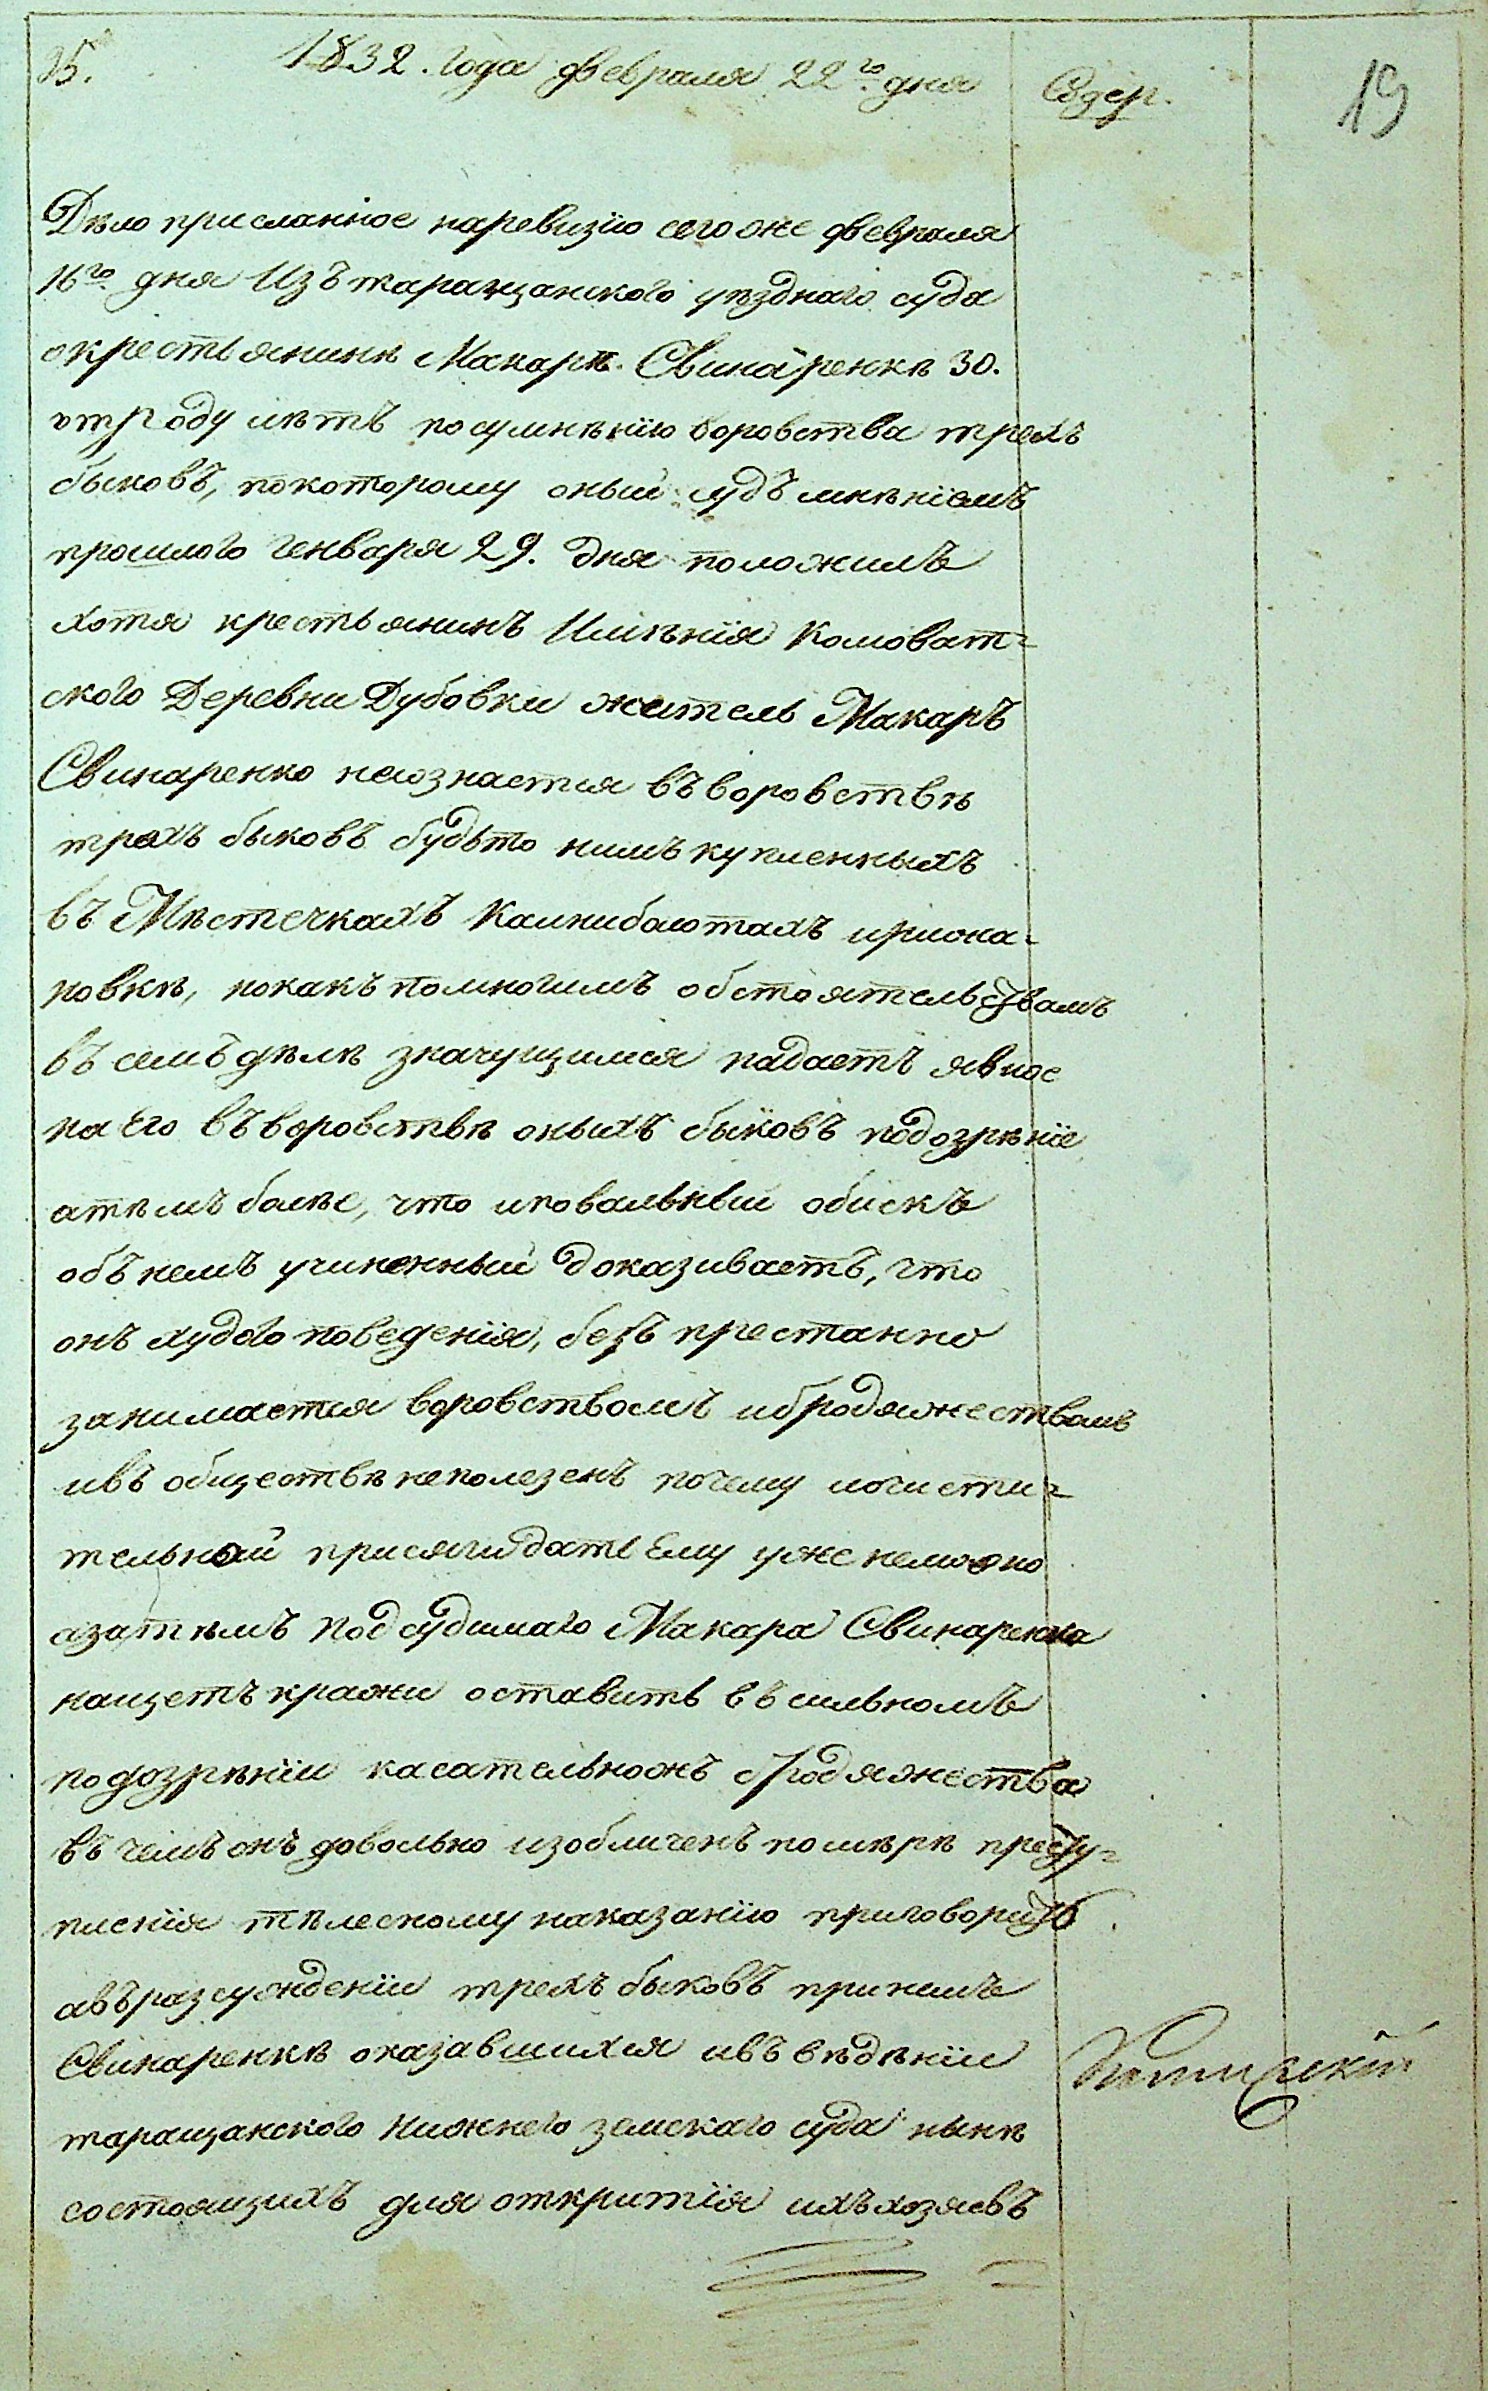 1832. года февраля 22го. дня
Содер.
19
Дѣло присланное наревизїю сегоже февраля
16го. дня Изъ таращанского уѣздного суда
окрестьянинѣ Макарѣ Свинаренкѣ 30.
отроду лѣтъ посумнѣнїю воровства трехъ
быковъ, покоторому оный судъ мнѣнїемъ
прошлого генваря 29. дня положилъ
хотя крестьянинъ Имѣнїя Комоват=
ского Деревни Дубовки житель Макаръ
Свинаренко несознается въворовствѣ
трехъ быковъ будьто нимъ купленныхъ
въ Мѣстечкахъ
новкѣ, нокакъ помногимъ обстоятельствамъ
въ семъ дѣлѣ значущимся падаетъ явное
на Его въворовствѣ оныхъ быковъ подозрѣнїе
атѣмъ болѣе, что иповальный обискъ
объ немъ учиненный доказиваетъ, что
онъ худого поведенїя, безъ престанно
занимается воровствомъ ибродяжествомъ
ивъ обществѣ неполезенъ почему иочисти=
тельной присяги дать Ему уже неможно
азатѣмъ подсудимаго Макара Свинаренка
нащетъ кражи оставить въ сильномъ
подозрѣнїи касательножъ бродяжества
въ чемъ онъ довольно изобличенъ помѣрѣ престу=
пленїя тѣлесному наказанїю приговорить
авъразсужденїи трехъ быковъ принемъ
Свинаренкѣ оказавшихся ивъ вѣдѣнїи
таращанского нижнего земскаго суда нынѣ
состоящихъ для откритїя ихъ хозяевъ